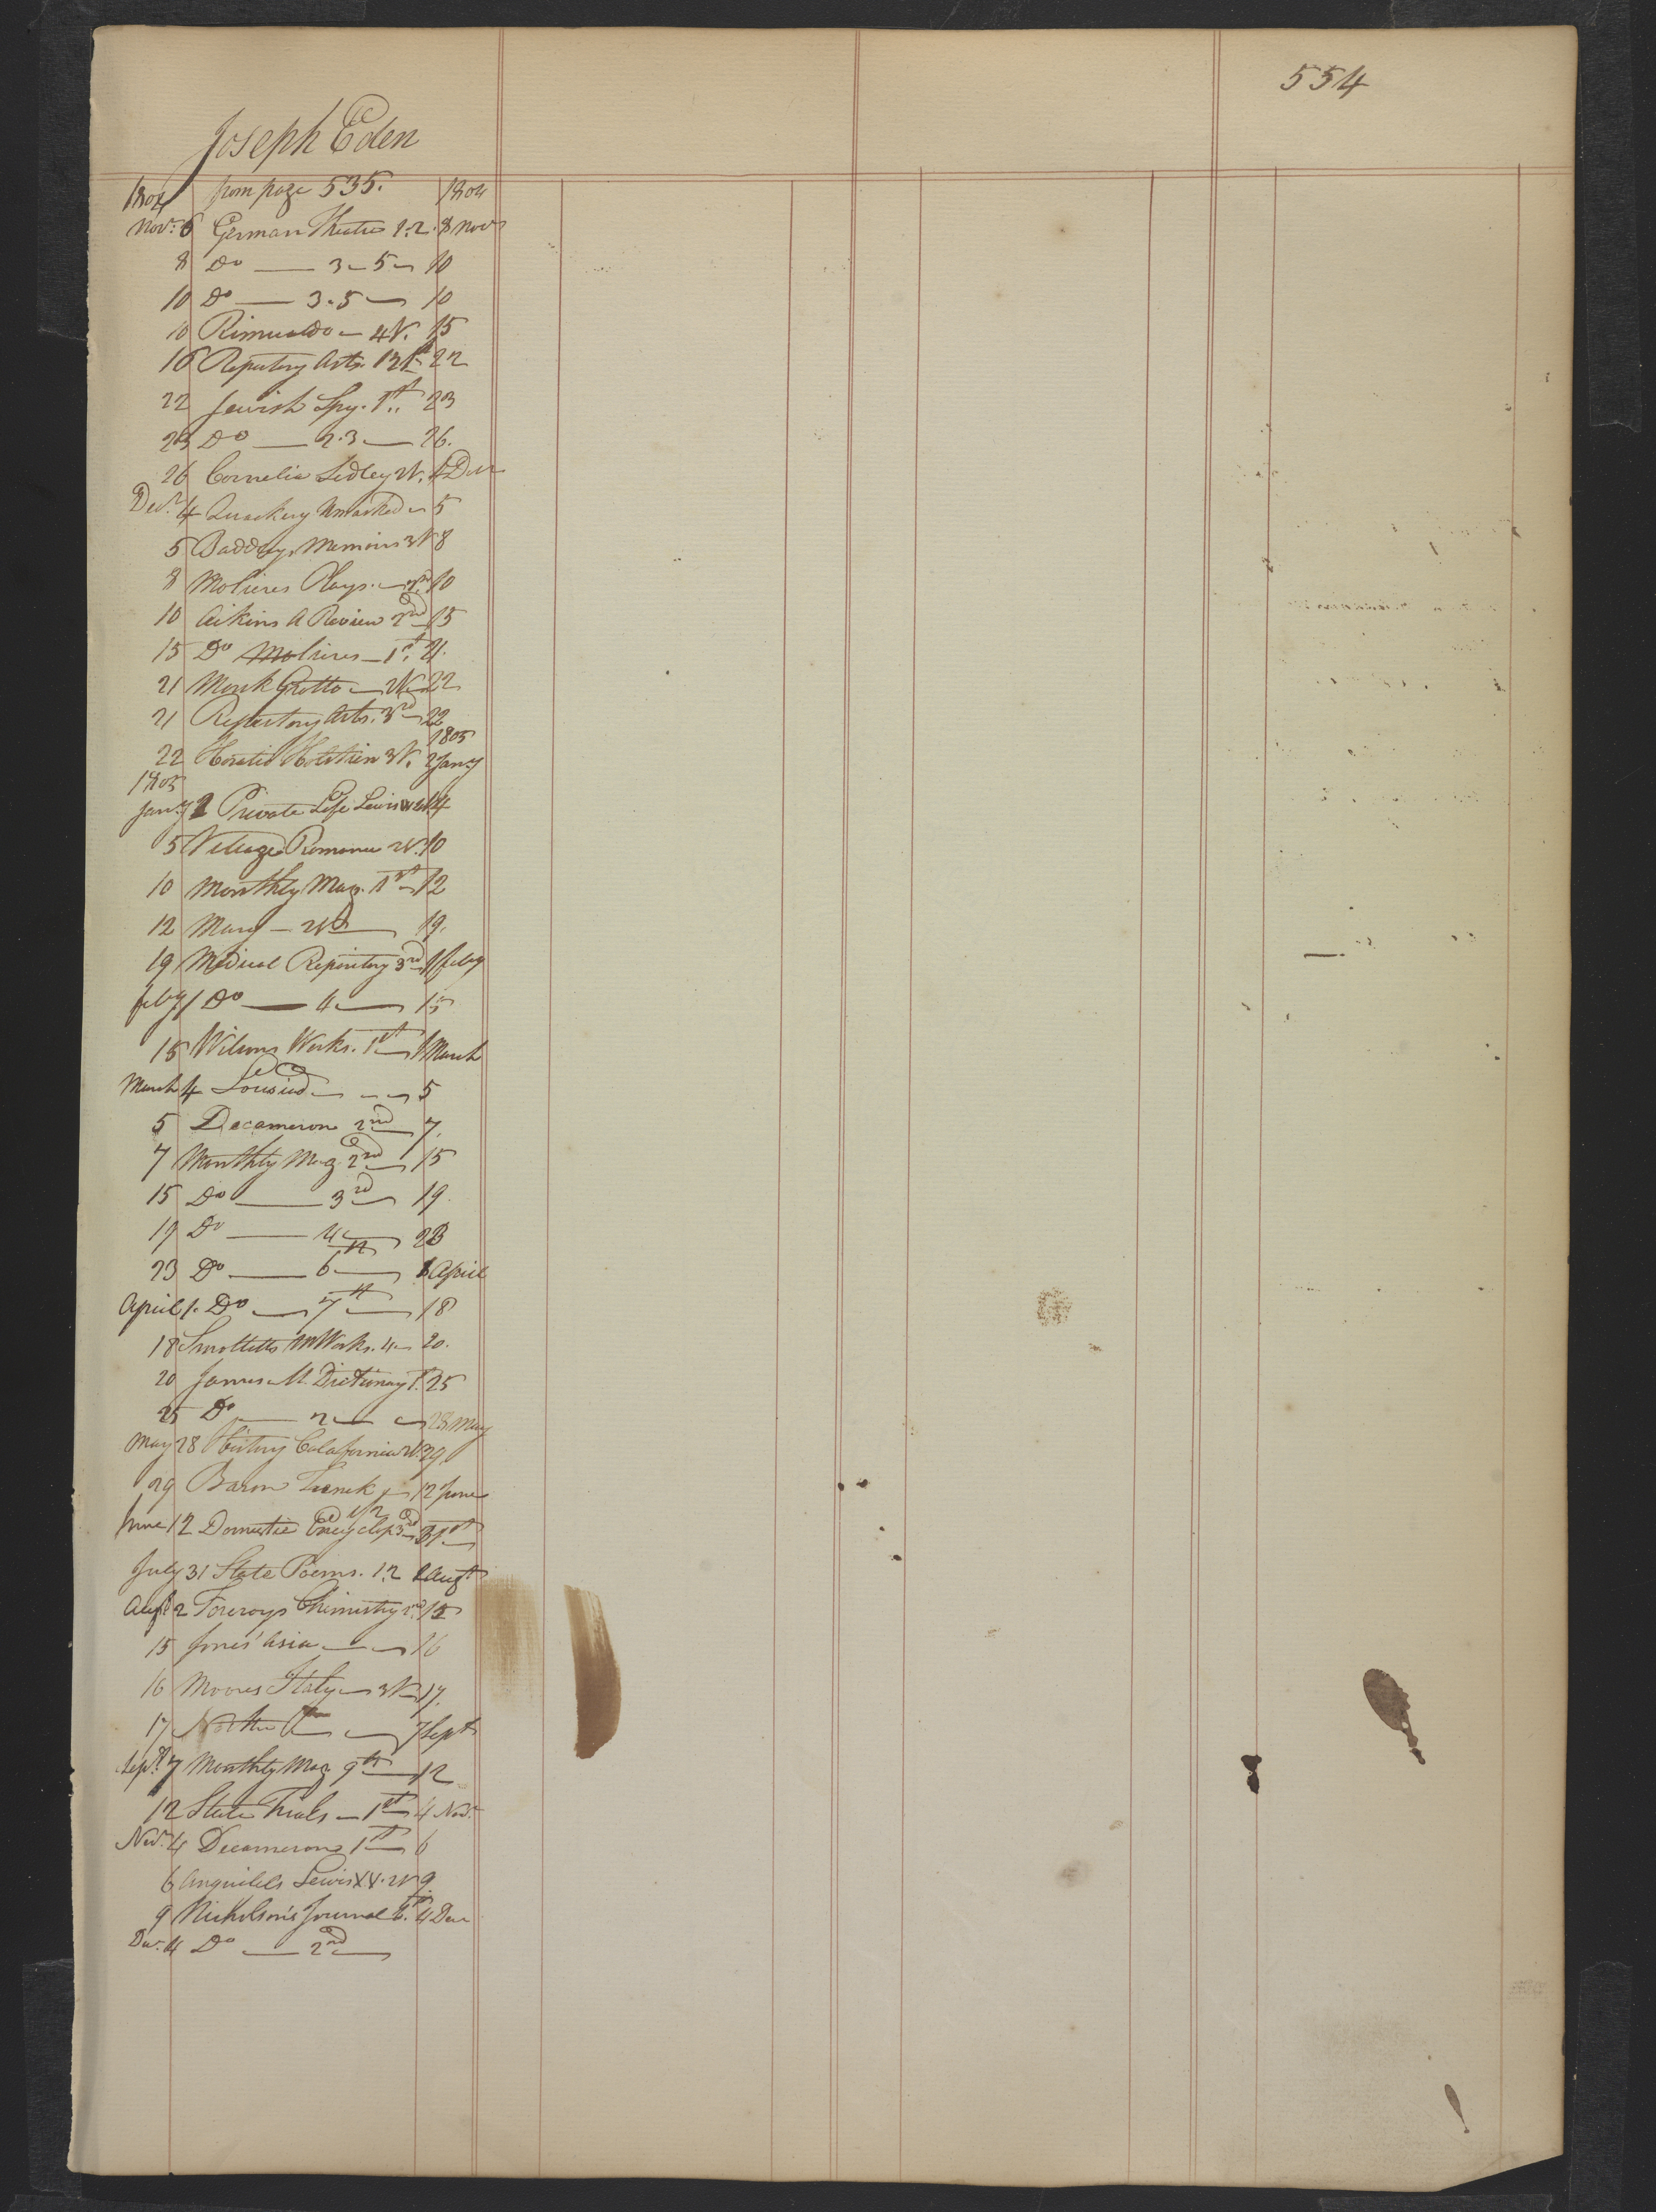 554
Joseph Eden
1804 from page 535. 1804
Novr. 6 German Theatre 1.2. 8 Novr
8 Do — 3 - 5 — 10
10 Do — 3.5 — 10
10 Rimualdo — 4V. 15
16 Repertory Arts. 22
22 Jewish Spy. 1st 23
23 Do — 2.3 — 26.
26 Cornelia Sedley 2V. 4 Decr
Decr. 4 Quackery Unmasked — 5
5 Baddely Memoirs 3V 8
8 Molieres Plays. — 10
10 Aikins A Review 2nd 15
15 Do Molieres — 1st. 21.
21 Monk Grotto — 2V — 22
21 Repertory Arts. 3rd — 22
1805
22 Horatio Holstein 3V. 2 Jany
1805
Jany 2 Private Life Lewis 4
5 Village Romance 2V. 10
10 Monthly Mag. 1st — 12
12 Mary — 2V — 19.
19 Medical Repository 3rd 1 Feby
Feby 1 Do — 4 — 15
15 Wilsons Works. 1st — 1 March
March 4 Lousiad — — — 5
5 Decameron 2nd 7.
7 Monthly Mag 2nd — 15
15 Do — 3rd — 19.
19 Do — 4 — 23
23 Do — 6th — 1 April
April 1. Do — 7th — 18
18 Smolletts Works. 4 — 20.
20 James M. Dictionary 1st. 25
25 Do — 2 — — 28 May
May 28 History Calafornia 2V. 29
29 Baron Trenck — 12 June
1/2
June 12 Domestic Encyclop 3d — 31st
July 31 State Poems. 1.2 2 Augt
Augt 2 Forcroys Chimistry 2nd. 15
15 Jones' Asia — — 16
16 Moores Italy — 3V — 17.
17 — 7 Sept
Sept. 7 Monthly Mag 9th — 12
12 State Trials — 1st — 4 Novr
Novr. 4 Decamerone 1st — 6
6 Anquitels Lewis XV. 2V 9
9 Nicholson's Journal 4 Decr
Decr. 4 Do — 2nd —